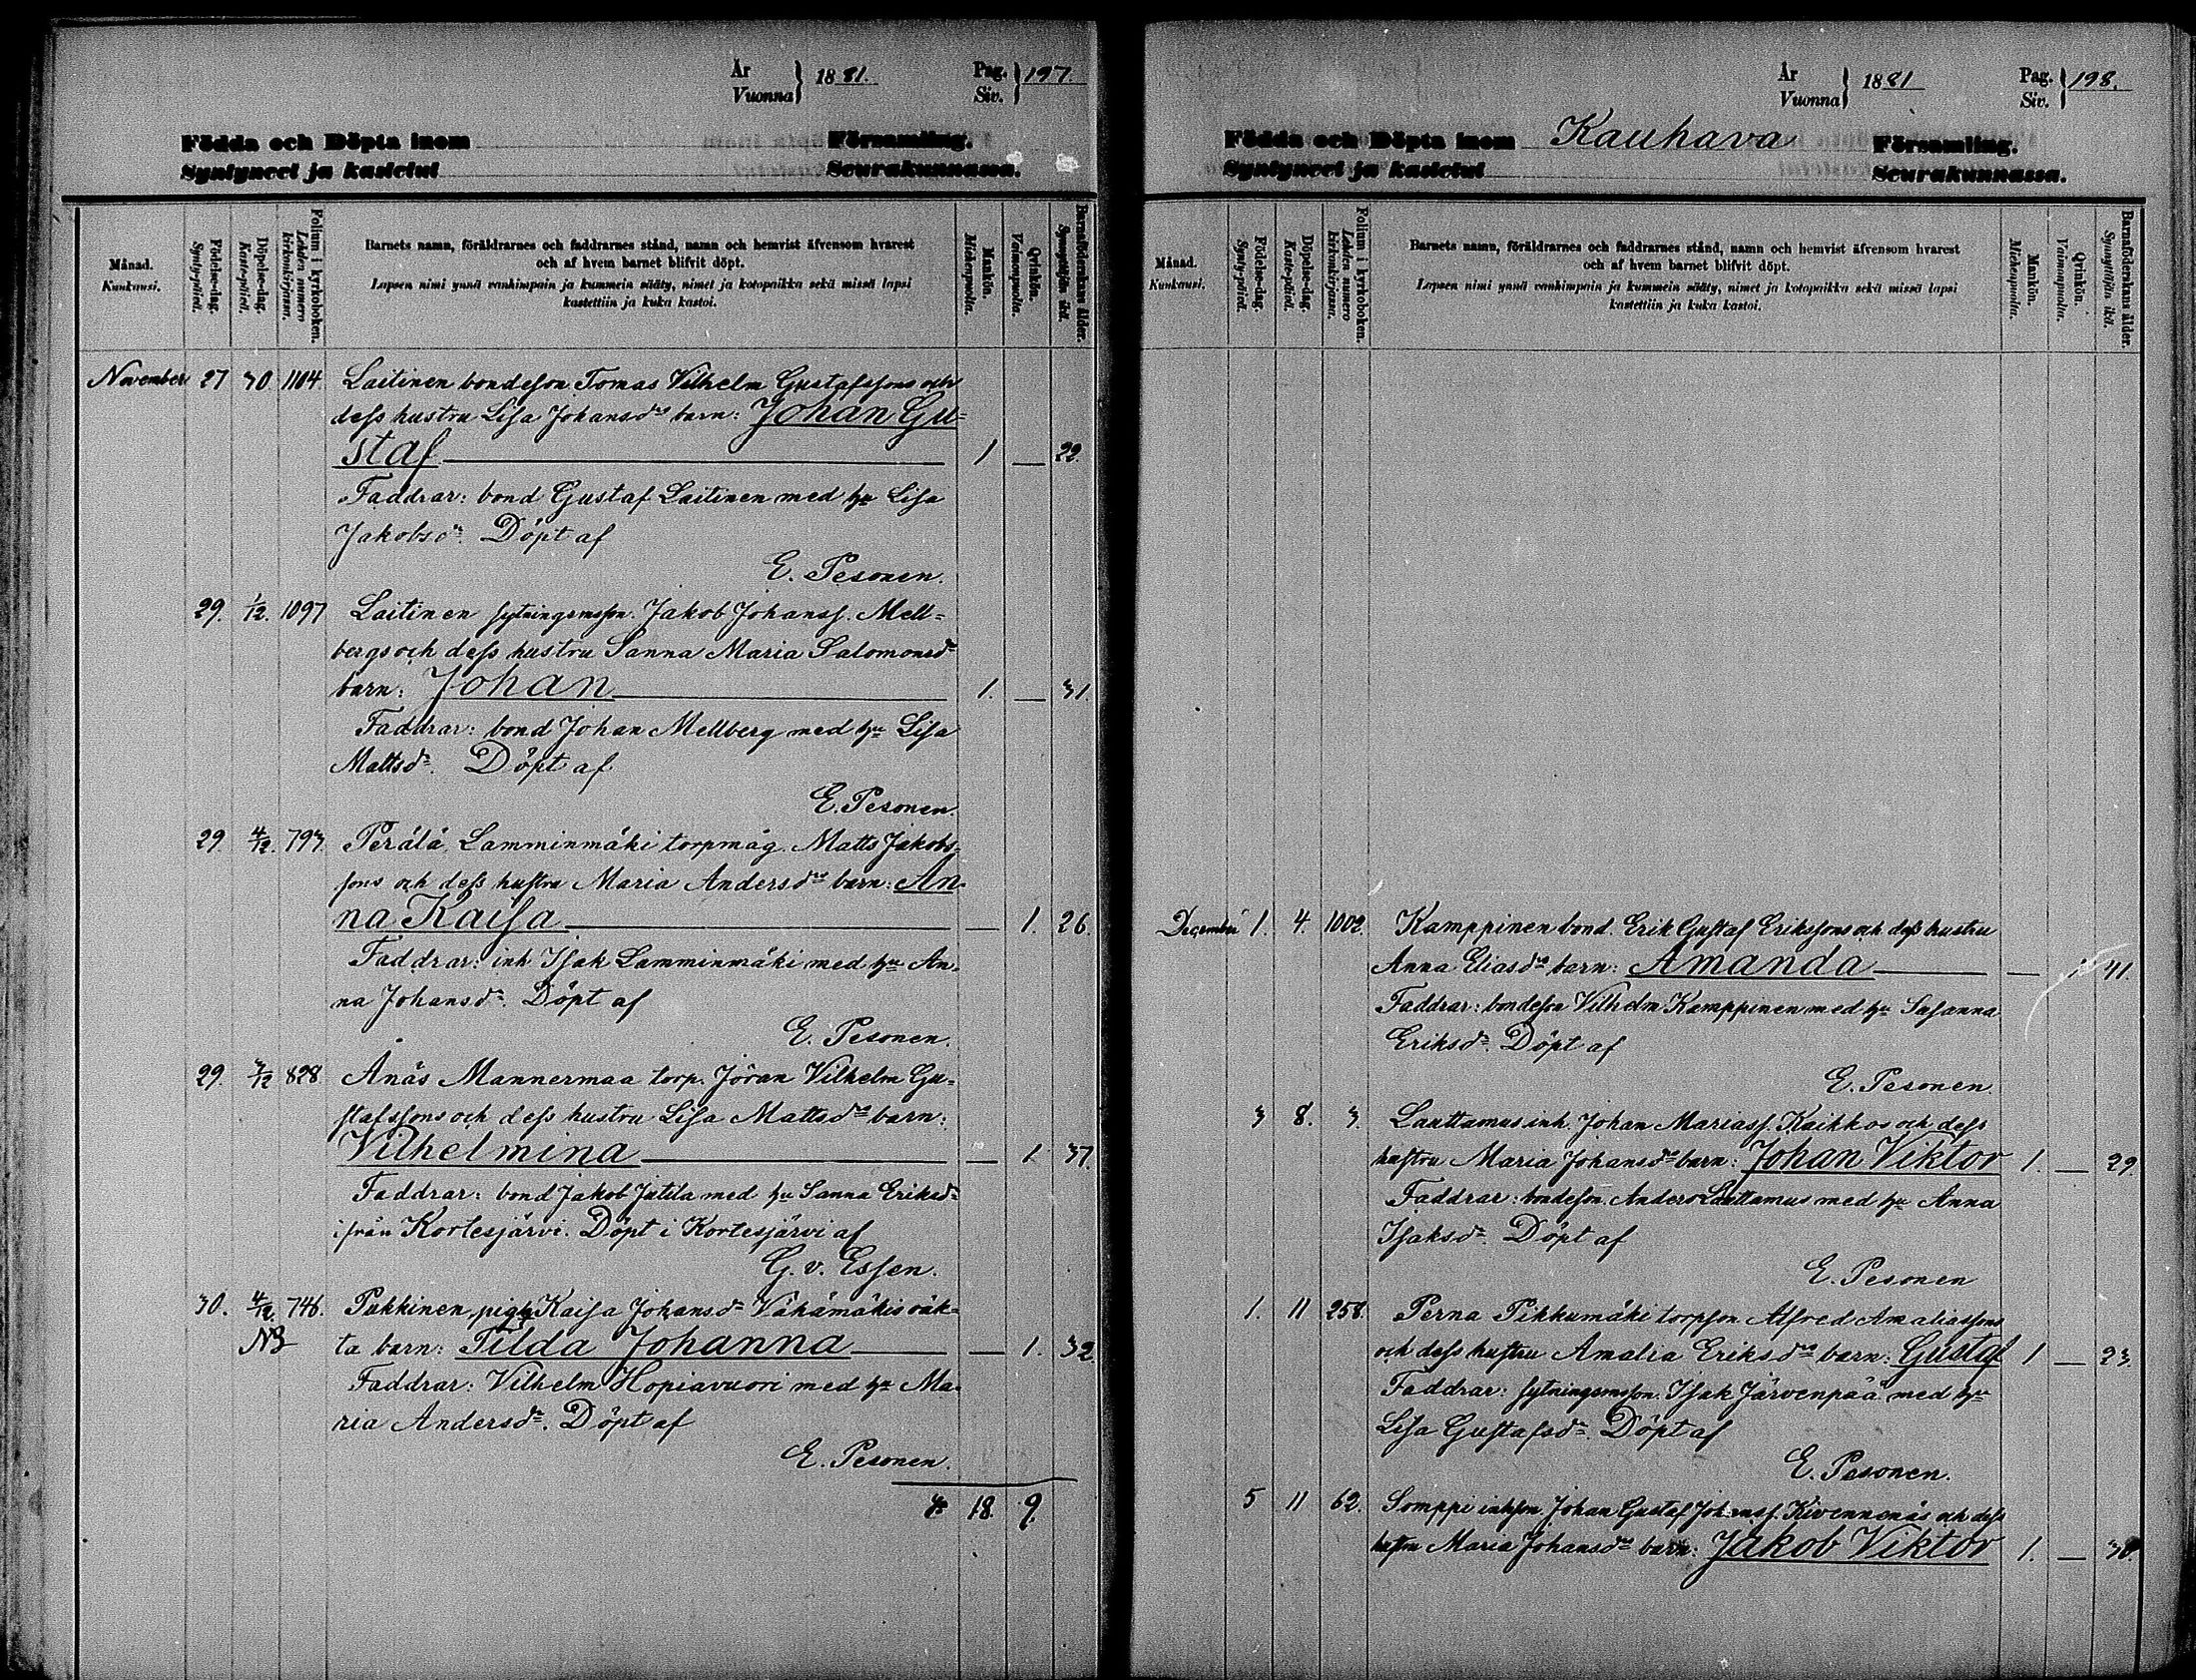 År
Vuonna } 1881. Pag.
Siv. } 197.
Födda och Döpta inom Församling.
Syntyneet ja kastetut Seurakunnassa.
Månad.
Kuukausi.
Födelse-dag.
Synty-päivä.
Döpelse-dag.
Kaste-päivä.
Folium i kyrkoboken.
Lehden numero
kirkonkirjassa.
Barnets namn, föräldrarnes och faddrarnes stånd, namn och hemvist äfvensom hvarest
och af hvem barnet blifvit döpt.
Lapsen nimi ynnä vanhimpain ja kummein sääty, nimet ja kotopaikka sekä missä lapsi
kastettiin ja kuka kastoi.
Mankön.
Miehenpuolia.
Qvinkön.
Vaimonpuolia.
Barnaföderskans ålder.
Synnyttäjän ikä.
November 27 30 1104 Laitinen bondeson Tomas Vilhelm Gustafssons och
dess hustru Lisa Johansdrs barn: Johan Gu-
staf 1 — 22.
Faddrar: bond Gustaf Laitinen med hu Lisa
Jakobsdr. Döpt af
E. Pesonen.
29. 1/12. 1097 Laitinen sytningsmsson. Jakob Johanss. Mell-
bergs och dess hustru Sanna Maria Salomonsdrs
barn: Johan 1. — 31.
Faddrar: bond Johan Mellberg med hu Lisa
Mattsdr. Döpt af
E. Pesonen.
29 4/12. 793. Perälä, Lamminmäki torpmåg. Matts Jakobs-
sons och dess hustru Maria Andersdrs barn: An-
na Kaisa — 1. 26.
Faddrar: inh Isak Lamminmäki med hu An-
na Johansdr. Döpt af
E. Pesonen.
29. 3/12 828 Ånäs Mannermaa torp. Jöran Vilhelm Gu-
stafssons och dess hustru Lisa Mattsdrs barn:
Vilhelmina — 1 37.
Faddrar: bond Jakob Jutila med hu Sanna Eriksdr
ifrån Kortesjärvi. Döpt i Kortesjärvi af
G. v. Essen.
30. 4/12. 746. Pukkinen, pigan Kaisa Johansdr Vähämäkis oäk-
NB ta barn: Tilda Johanna — 1. 32.
Faddrar: Vilhelm Hopiavuori med hu Ma-
ria Andersdr. Döpt af
E. Pesonen.
18. 9.
År
Vuonna } 1881 Pag.
Siv. } 198.
Födda och Döpta inom Kauhava Församling.
Syntyneet ja kastetut Seurakunnassa.
Månad.
Kuukausi.
Födelse-dag.
Synty-päivä.
Döpelse-dag.
Kaste-päivä.
Folium i kyrkoboken.
Lehden numero
kirkonkirjassa.
Barnets namn, föräldrarnes och faddrarnes stånd, namn och hemvist äfvensom hvarest
och af hvem barnet blifvit döpt.
Lapsen nimi ynnä vanhimpain ja kummein sääty, nimet ja kotopaikka sekä missä lapsi
kastettiin ja kuka kastoi.
Mankön.
Miehenpuolia.
Qvinkön.
Vaimonpuolia.
Barnaföderskans ålder.
Synnyttäjän ikä.
December 1. 4. 1002. Kamppinen bond. Erik Gustaf Erikssons och dess hustru
Anna Eliasdrs barn: Amanda — 41.
Faddrar: bondeson Vilhelm Kamppinen med hu Susanna
Eriksdr. Döpt af
E. Pesonen.
3 8. 3. Lauttamus inh. Johan Mariass. Kaikkos och dess
hustru Maria Johansdrs barn: Johan Viktor 1. — 29.
Faddrar: bondeson. Anders Lauttamus med hu Anna
Isaksdr. Döpt af
E. Pesonen
1. 11 258. Perna Pikkumäki torpson Alfred Amaliassons
och dess hustru Amalia Eriksdrs barn: Gustaf 1 — 23.
Faddrar: sytningsmsson. Isak Järvenpää med hu
Lisa Gustafsdr. Döpt af
E. Pesonen.
5 11 62. Somppi inhson Johan Gustaf Johanss. Kivennenäs och dess
hustru Maria Johansdrs barn: Jakob Viktor 1. —